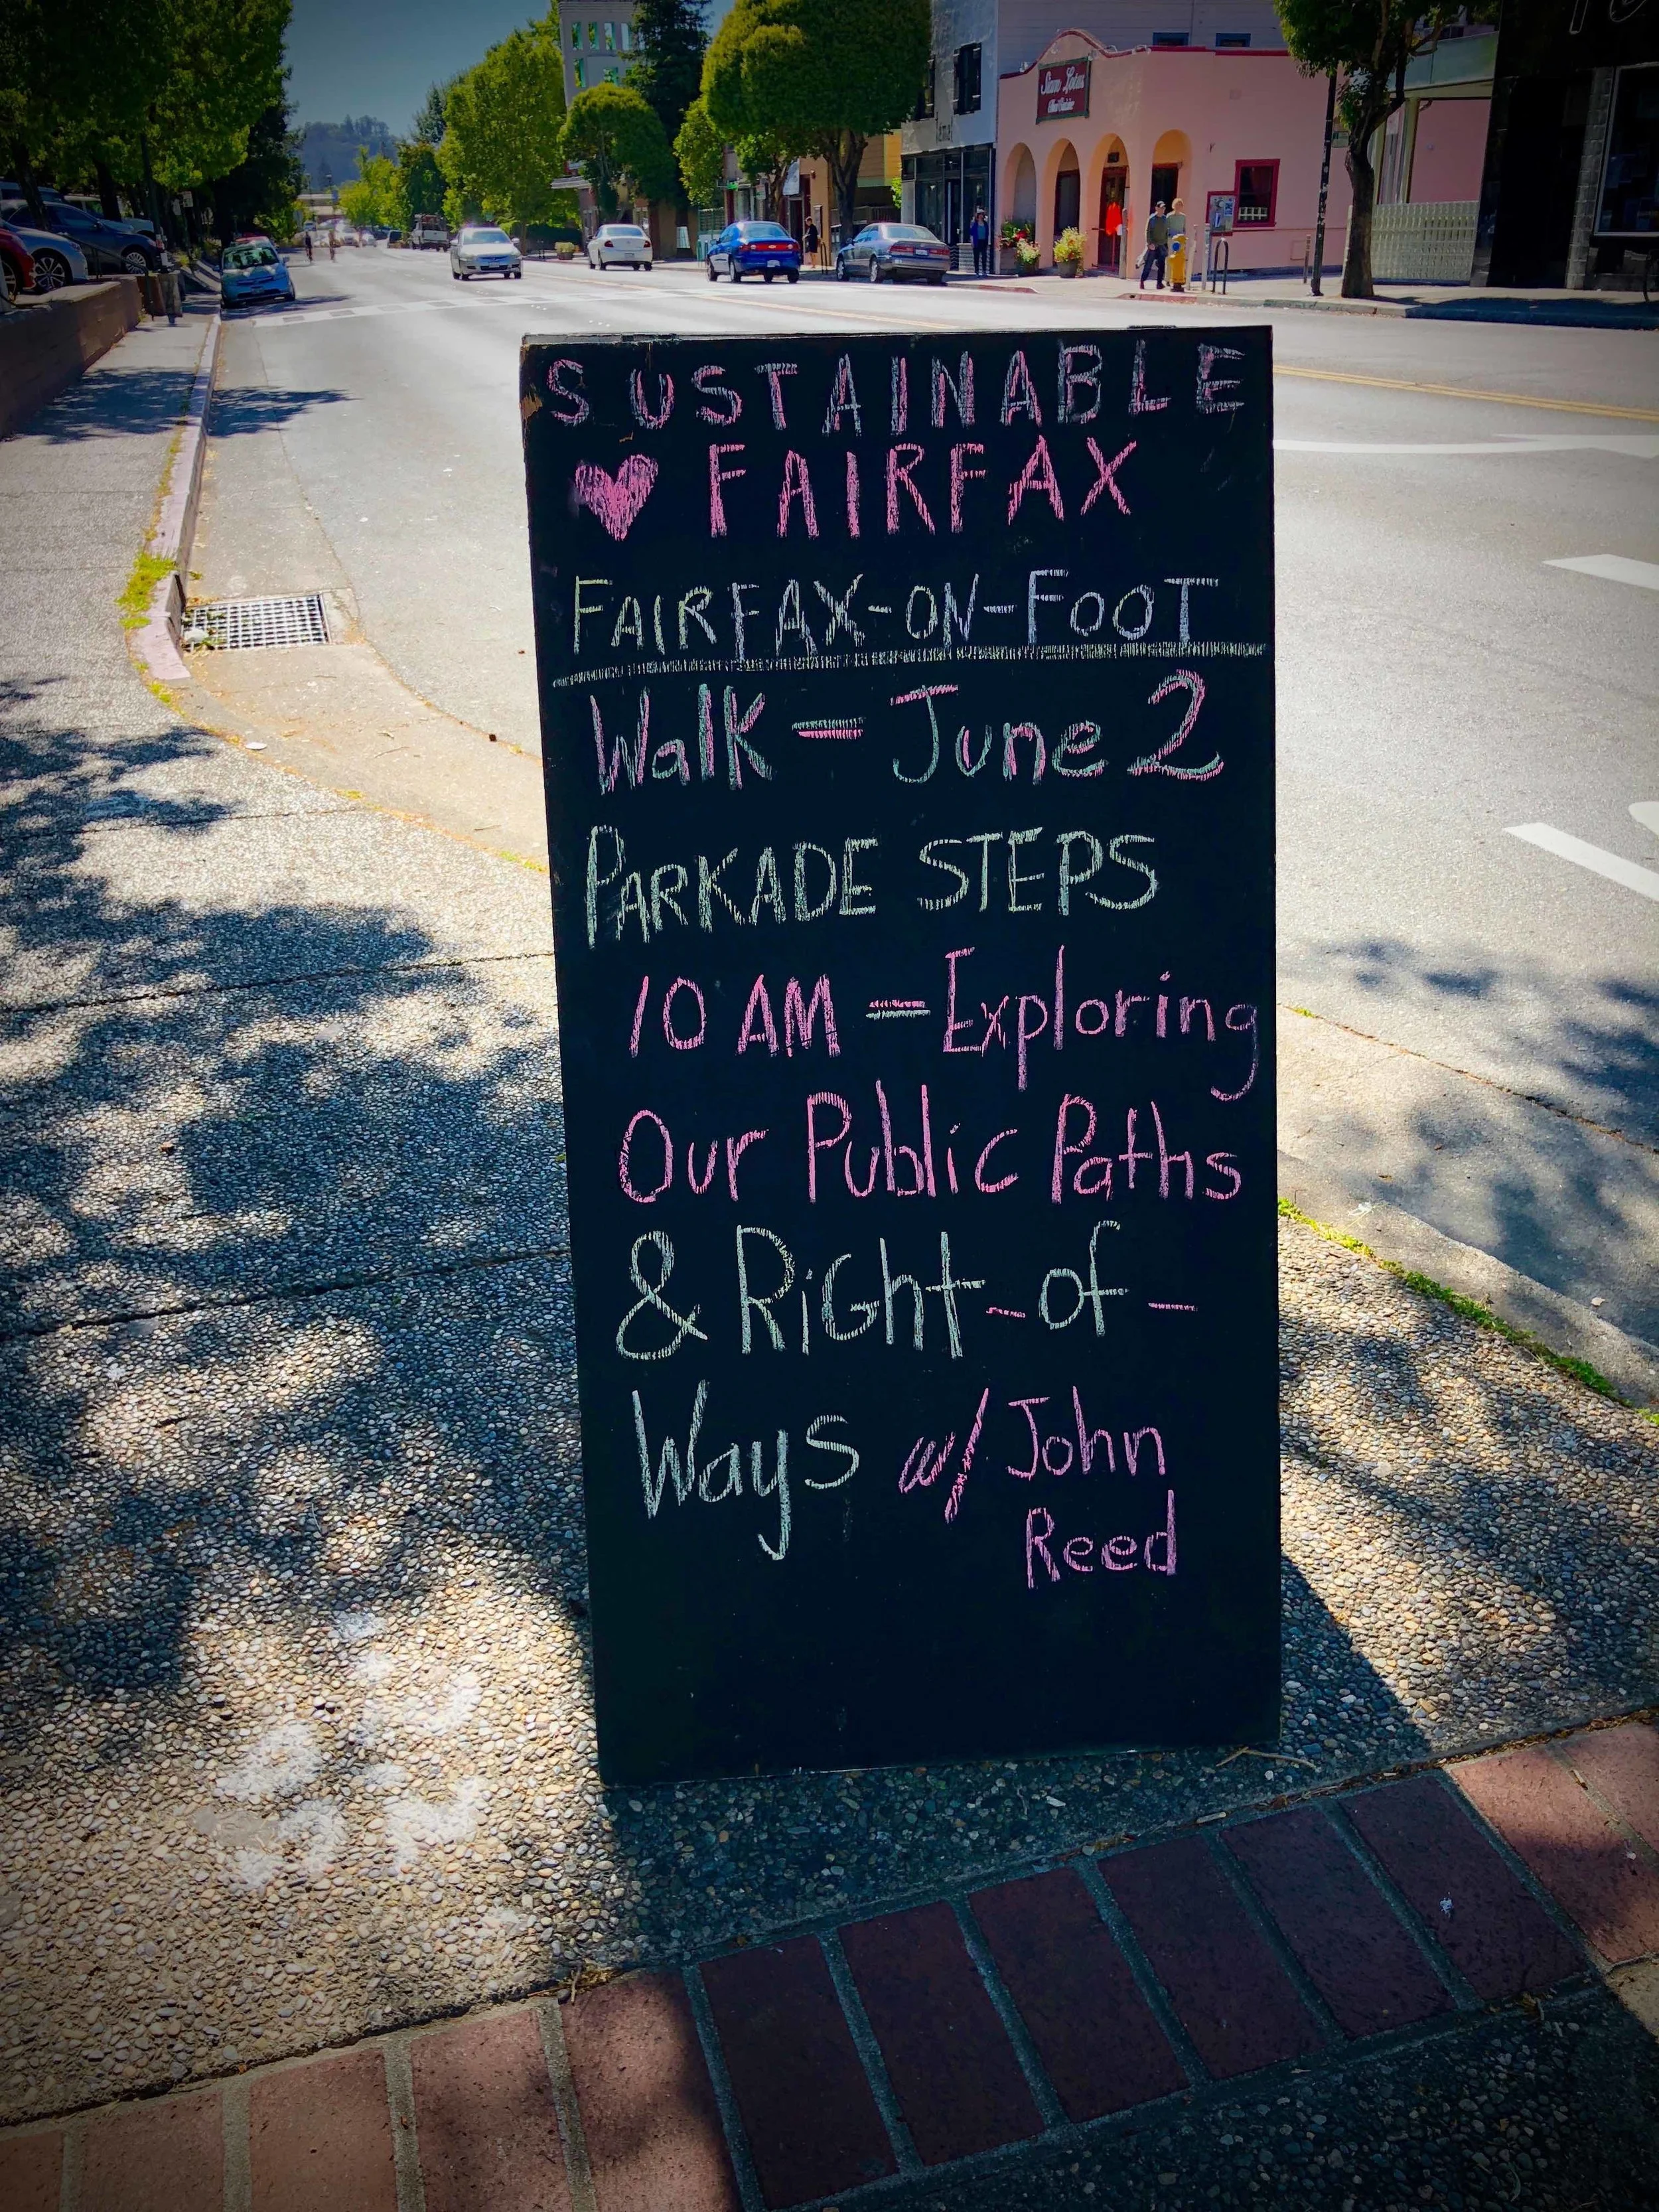 SUSTAINABLE
FAIRFAX
FAIRFAX-ON-FOOT
Walk - June 2
PARKADE STEPS
10 AM - Exploring
Our Public Paths
& RiGht-of-
Ways w/ John
Reed